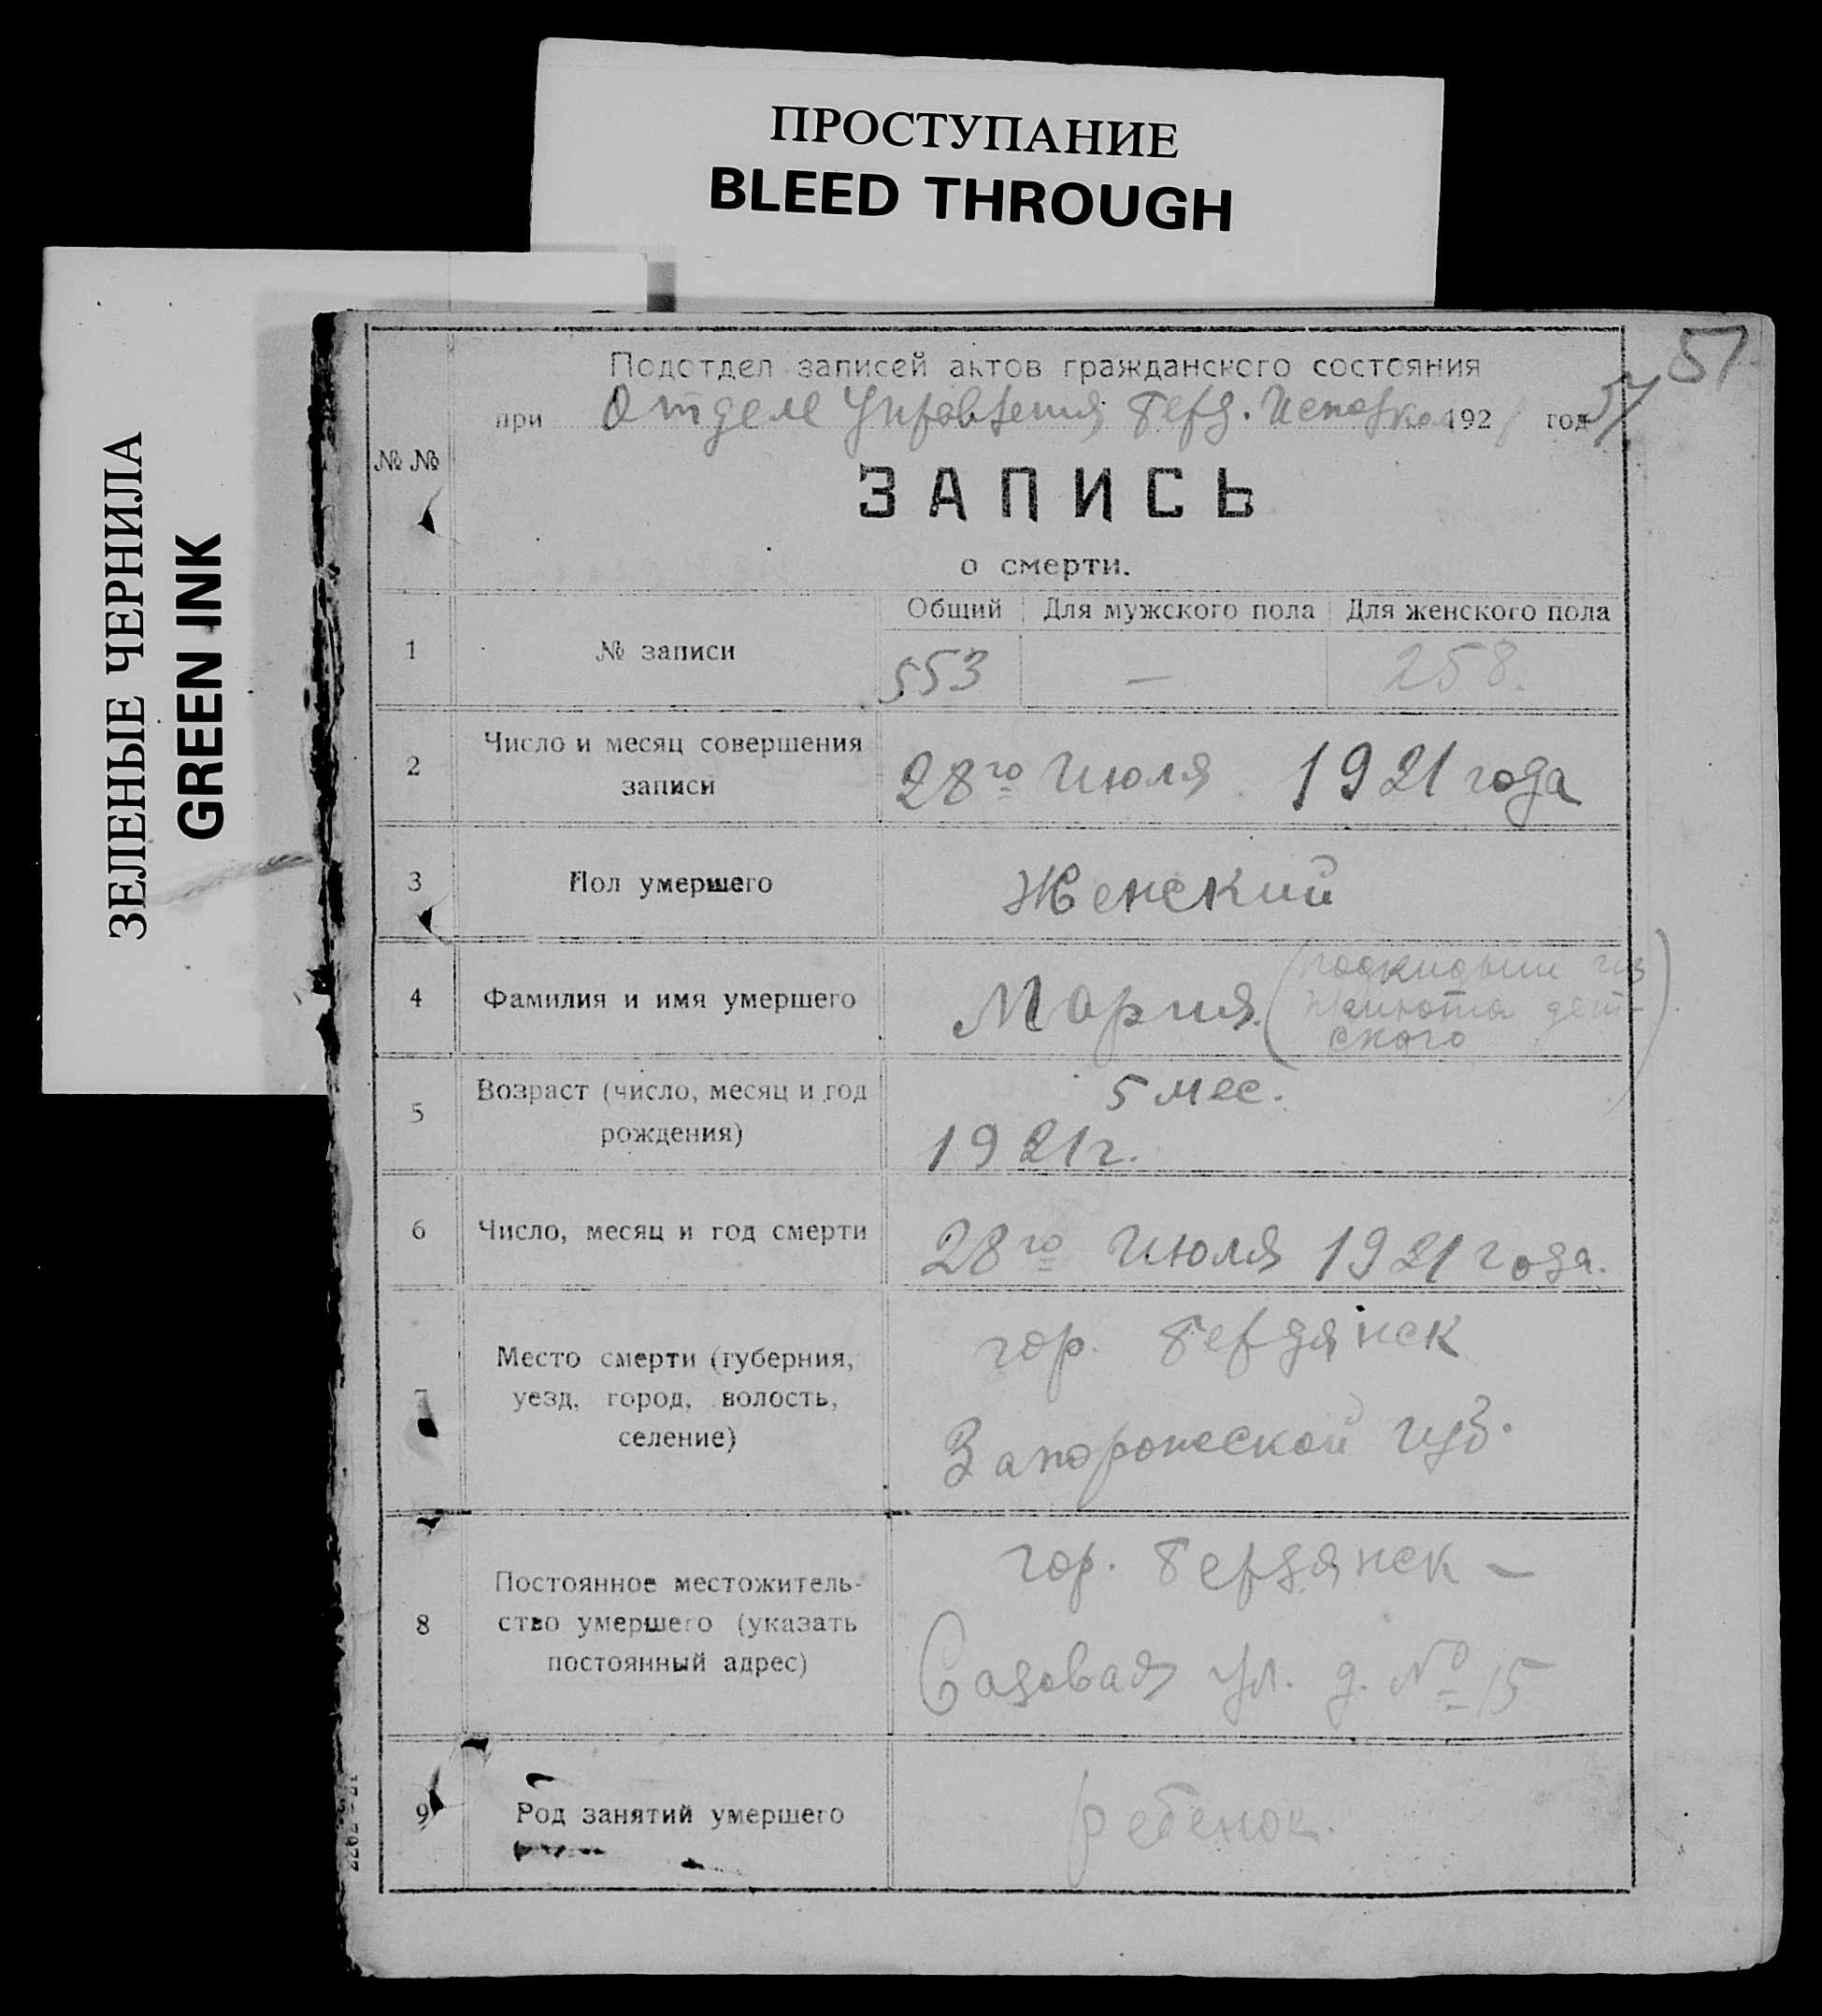 ПРОСТУПАНИЕ
BLEED THROUGH
ЗЕЛЕНЫЕ ЧЕРНИЛА
GREEN INK
51
Подотдел записей актов гражданского состояния
при Отделе Управления Берд. Исполко 1921 год
51
№ №
ЗАПИСЬ
о смерти.
Общий Для мужского пола Для женского пола
1 № записи 553 — 258.
2 Число и месяц совершения
записи
28го Июля 1921 года
3 Пол умершего Женский
4 Фамилия и имя умершего Мария (подкидыш из
приюта дет-
ского)
5 Возраст (число, месяц и год
рождения)
5 мес.
1921 г.
6 Число, месяц и год смерти 28го Июля 1921 года.
7 Место смерти (губерния,
уезд, город, волость,
селение)
гор. Бердянск
Запорожской губ.
8 Постоянное местожитель-
ство умершего (указать
постоянный адрес)
гор. Бердянск —
Садовая ул. д. № 15
9 Род занятий умершего ребенок.